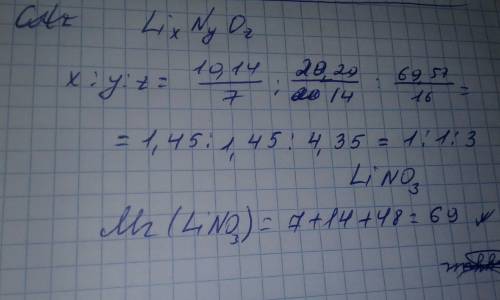 LixNyOz
x : y : z = 10,14/7 : 20,29/14 : 69,57/16 =
= 1,45 : 1,45 : 4,35 = 1 : 1 : 3
LiNO3
Mr (LiNO3) = 7+14+48 = 69